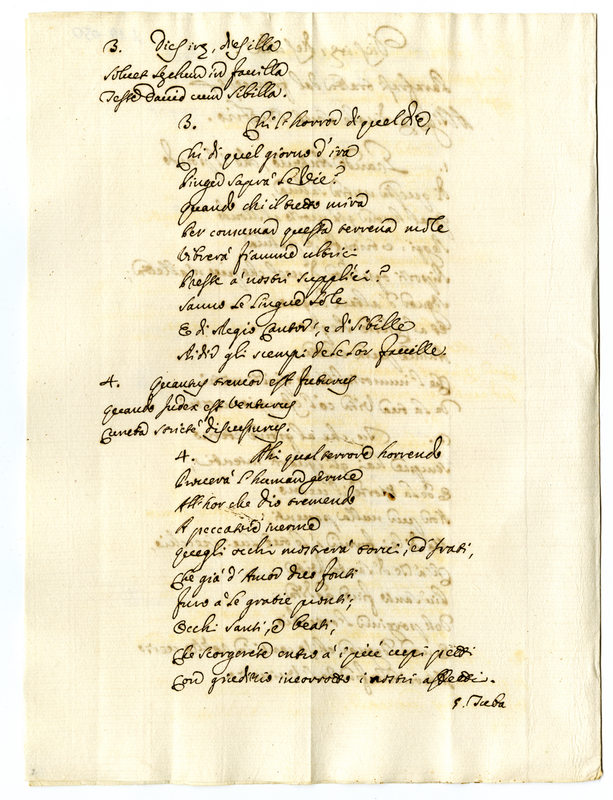 3. Dies irę, dies illa
Solvet sęclum in favilla
Teste David cum Sibilla.
3. Chi l'horror di quel die,
Chi di quel giorno d'ira
Pinger saprà le vie?
Quando chi il tutto mira
Per consumar questa terrena mole
Vibrerà fiamme ultrici
Preste à nostri supplici?
Sanno le lingue sole
E di Regio Cantor, e di Sibille
Ridir gli scempi de le lor faville.
4. Quantus tremor est futurus
Quando Judex est venturus
Cuncta stricte discussurus.
4. Ahi qual terrore horrendo
Proverà l'human germe
All'hor che Dio tremendo
A peccatore inerme
Quegli occhi mostrerà torvi, ed irati,
Che già d'Amor due fonti
Furo à le gratie pronti;
Occhi santi, e beati,
Che scorgerete entro à i più cupi petti
Con giuditio incorrotto i nostri affetti.
5. Tuba